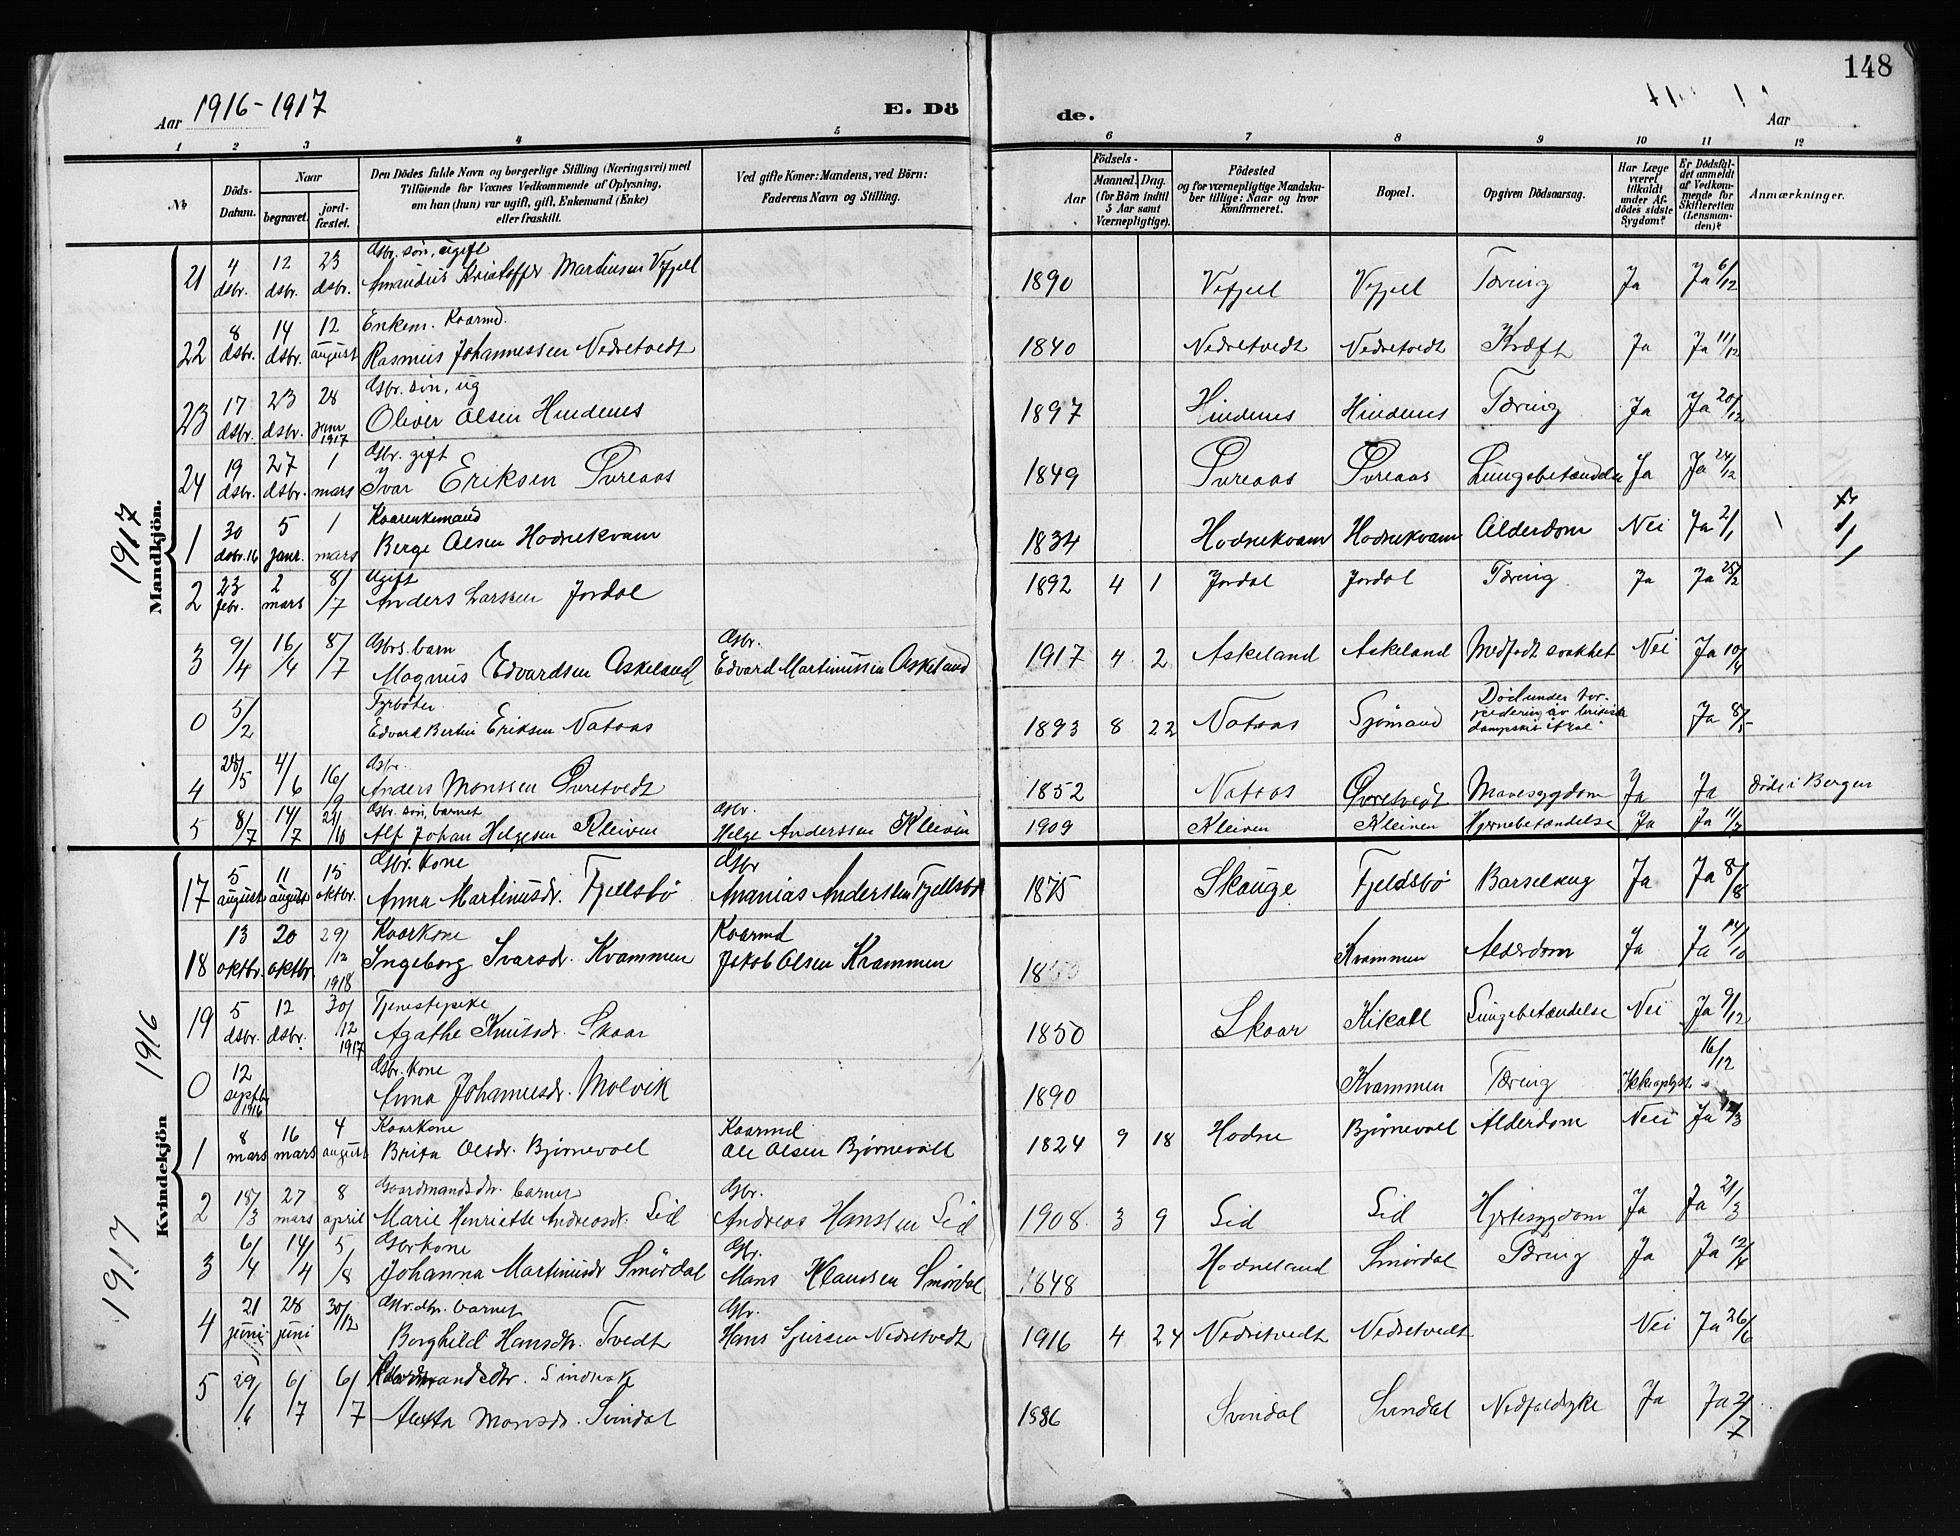 148
Aar 1916-1917 E. Dö de. Aar
1 2 3 4 5 6 7 8 9 10 11 12
No Döds-Datum. Naar begravet. jordfæstet. Den Dödes fulde Navn og borgerlige Stilling (Næringsvei) med Tilföiende for Voxnes Vedkommende af Oplysning, om han (hun) var ugift, gift, Enkemand (Enke) eller fraskilt. Ved gifte Koner: Mandens, ved Börn: Faderens Navn og Stilling. Aar Födsels- Maaned. Dag. (for Börn indtil 5 Aar samt Værnepligtige). Födested og for værnepligtige Mandskaber tillige: Naar og hvor konfirmeret. Bopæl. Opgiven Dödsaarsag. Har Læge været tilkaldt under Afdödes sidste Sygdom? Er Dödsfaldet anmeldt af Vedkommende for Skifteretten (Lensmanden)? Anmærkninger.
Mandkjön.
21 4 dsbr. 12 dsbr. 23 dsbr. Gbr. søn, ugift Amandus Kristoffer Martinsen Vefjell 1890 Vefjell Vefjell Tæring Ja Ja 6/12
22 8 dsbr. 14 dsbr. 12 august Enkem. Kaarmd. Rasmus Johannessen Nedretvedt 1840 Nedretvedt Nedretvedt Kræft Ja Ja 11/12
23 17 dsbr. 23 dsbr. 28 1917 Gbr. søn, ug Oliver Olsen Hindenes 1897 Hindenes Hindenes Tæring Ja Ja 20/12
24 19 dsbr. 27 dsbr. 1 mars Gbr. gift Ivar Eriksen Øvreaas 1849 Øvreaas Øvreaas Lungebetændelse Ja Ja 24/12
1917
1 30 dsbr. 16 5 janr. 1 mars Kaarenkemand Berge Olsen Hodnekvam 1834 Hodnekvam Hodnekvam Alderdom Nei Ja 2/1
2 23 febr. 2 mars 8/7 Ugift Anders Larssen Jordal 1892 4 1 Jordal Jordal Tæring Ja Ja 25/2
3 9/4 16/4 8/7 Gbrs. barn Magnus Edvardsen Askeland Gbr. Edvard Martinussen Askeland 1917 4 2 Askeland Askeland Medfødt svakhet Nei Ja 10/4
0 5/2 Fyrbøter Edvard Bertin Eriksen Nataas 1893 8 22 Nataas Sjømand Død under torpedering av britisk dampskib Ja 8/5
4 28/5 4/6 16/9 Gbr. Anders Monssen Øvretvedt 1852 Nataas Øvretvedt Mavesygdom Ja Ja Døde i Bergen
5 8/7 14/7 21/10 Gbr. søn, barnet Alf Johan Helgesen Kleiven Gbr. Helge Anderssen Kleiven 1909 Kleiven Kleiven Hjernebetændelse Ja Ja 11/7
Kvindekjön 1916
17 5 august 11 august 15 oktbr. Gbr. kone Anna Martinusdr. Fjellsbø Gbr Ananias Anderssen Fjellsbø 1875 Skauge Fjeldsbø Barselseng Ja Ja 8/8
18 13 oktbr. 20 oktbr. 29/12 1918 Kaarkone Ingeborg Ivarsdr. Kvammen Kaarmd Jakob Olsen Kvammen Kvammen Alderdom Ja Ja 14/10
19 5 dsbr. 12 dsbr. 30/12 1917 Tjenestepike Agathe Knutsdr. Skaar 1850 Skaar Kikall Lungebetændelse Nei Ja 9/12
0 12 septbr 1916 Gbr. kone Anna Johannesdr. Molvik 1890 Kvammen Tæring Ikke oplyst 16/12
1917
1 8 mars 16 mars 4 august Kaarkone Brita Olsdr. Bjørnevoll Kaarmd Ole Olsen Bjørnevoll 1824 9 18 Hodne Bjørnevoll Alderdom Nei Ja 12/3
2 18/3 27 mars 8 april Gaardmandsdtr. barnet Marie Henriette Andreasdr. Eid Gbr. Andreas Hanssen Eid 1908 3 9 Eid Eid Hjertesygdom Ja Ja 21/3
3 6/4 14/4 5/8 Gbr kone Johanna Martinusdr Smørdal Gbr. Mons Klaussen Smørdal 1848 Hodneland Smørdal Tæring Ja Ja 12/4
4 21 juni 28 juni 30/12 Gbr. dtr. barnet Borghild Hansdtr. Tvedt Gbr. Hans Sjursen Nedretvedt 1916 4 24 Nedretvedt Nedretvedt Nei Ja 26/6
5 29/6 6/7 6/7 Sindssvak Monsdr. Svindal 1886 Svindal Svindal Nedfaldsyke Ja Ja 2/7